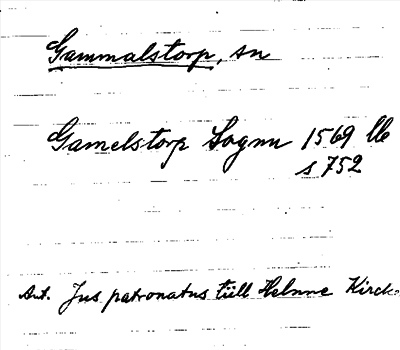 Gammalstorp, sn
Gamelstorp Sognn 1569 lb
s 752
Ant. Jus patronatus tiill Helnne Kirck-